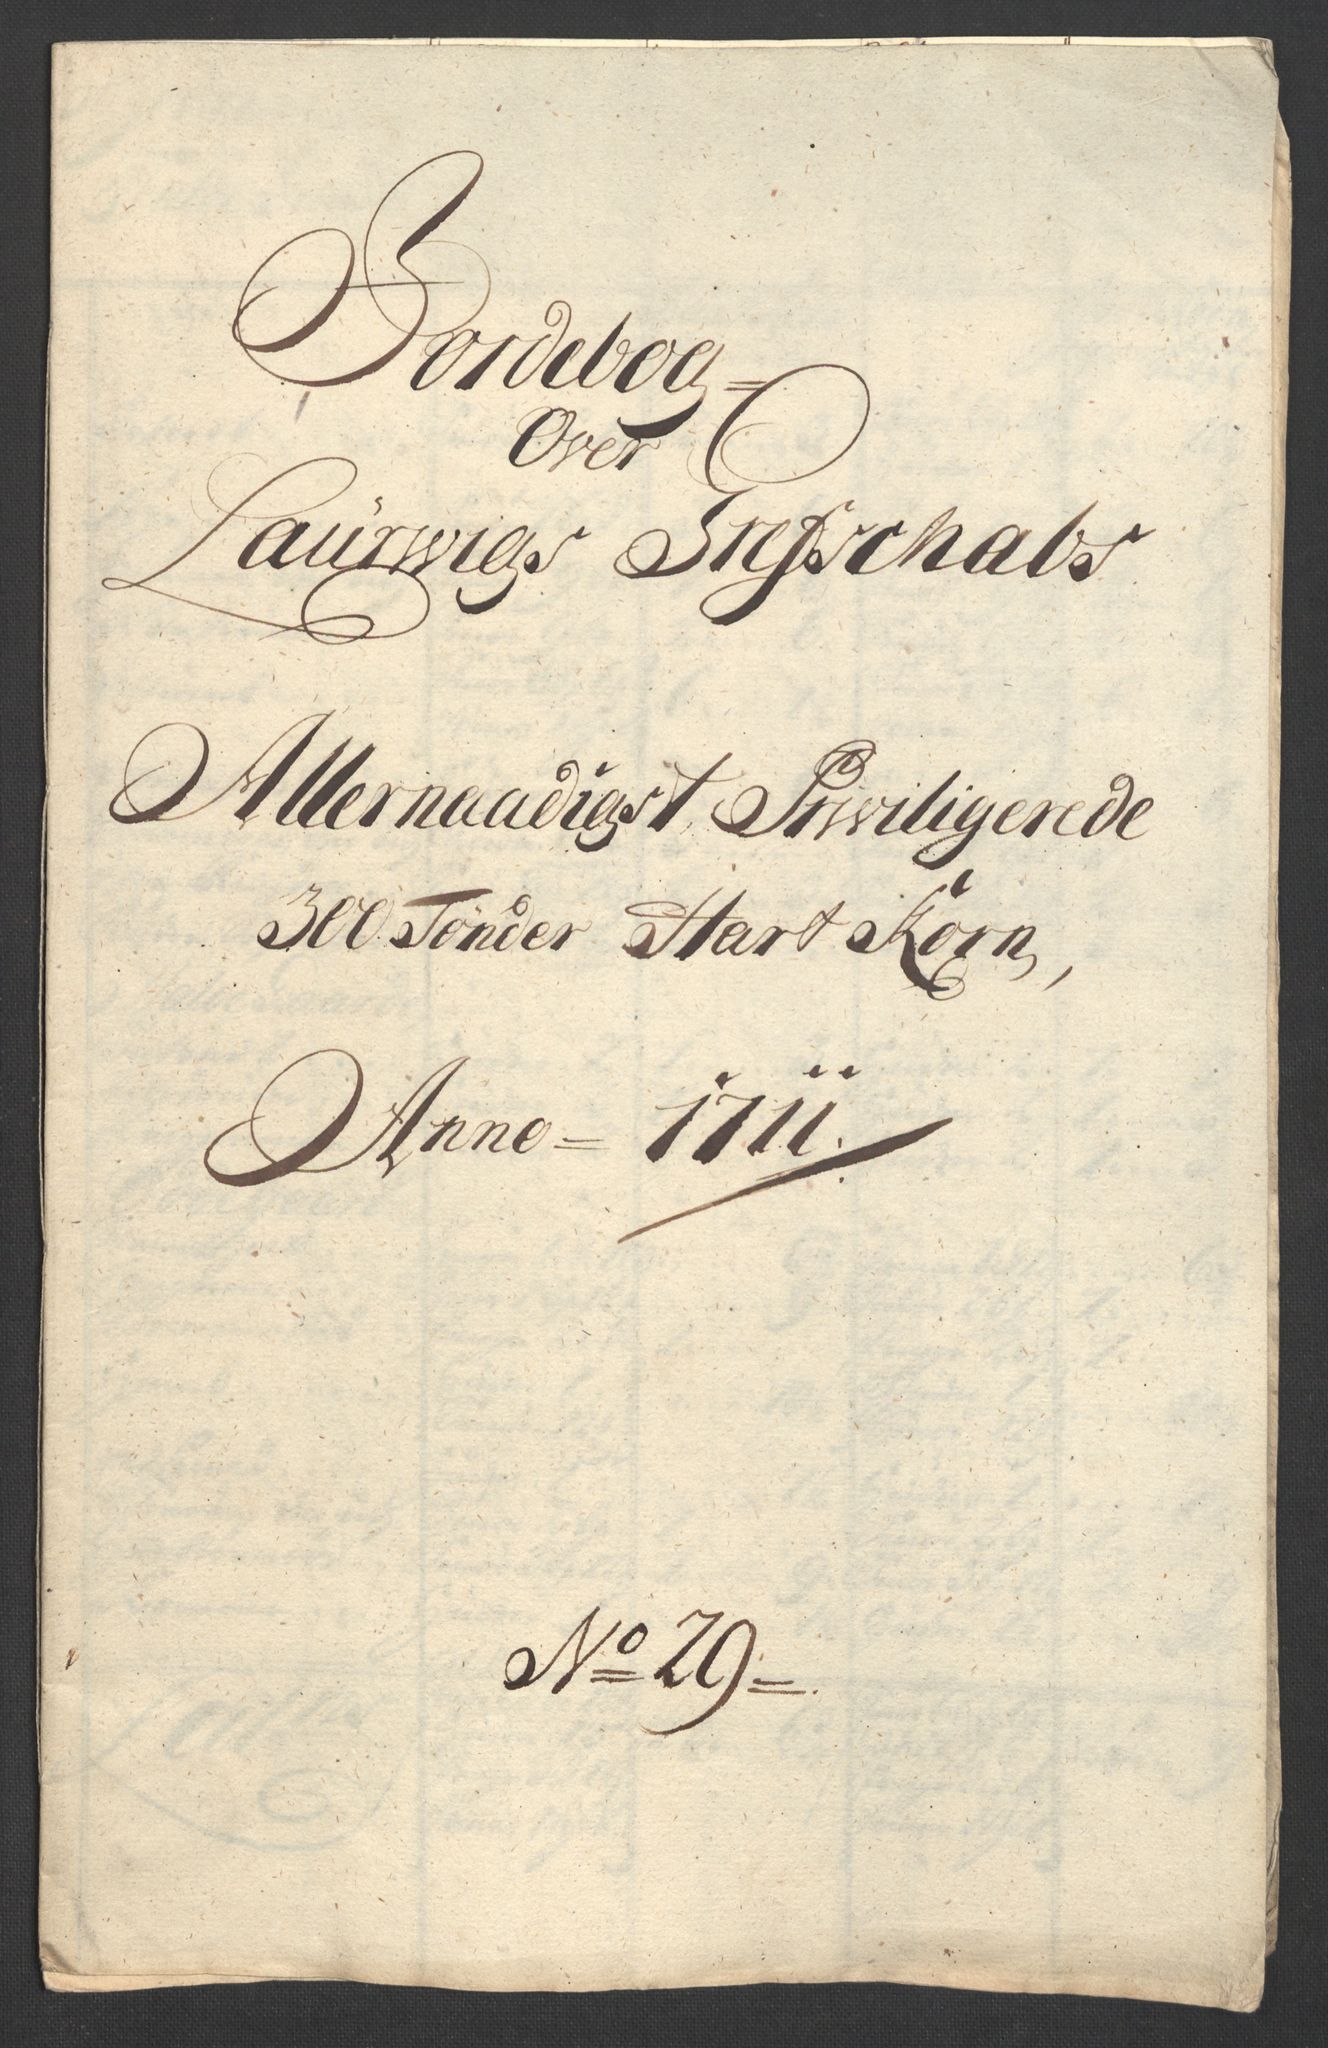 Jordebog =
Over
Laürwigs Grefschabs
Allernaadigst Priwiligerede
300 Tönder Hart Korn,
Anno = 1711.
No 29 =